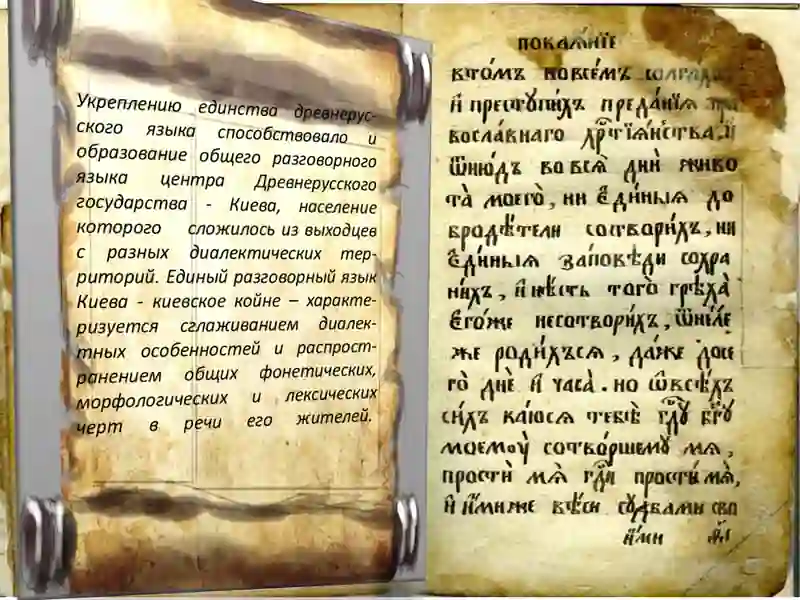 Укреплению единства древнерус-
ского языка способствовало и
образование общего разговорного
языка центра Древнерусского
государства - Киева, население
которого сложилось из выходцев
с разных диалектических тер-
риторий. Единый разговорный язык
Киева - киевское койне – характе-
ризуется сглаживанием диалек-
тных особенностей и распрост-
ранением общих фонетических,
морфологических и лексических
черт в речи его жителей.
ПОКАѦ́НЇЕ
вто́мъ повсе́мъ солга́
и҆ престꙋпи́хъ преда́нїѧ
вославнаго хрⷭ҇тїѧнства
ѿню́дъ во всѧ̀ дни̑ живо
та̀ моегѡ̀, ни є҆ди́ныѧ до
бродѣ́тели сотвори́хъ, ни
є҆ди́ныѧ за́повѣди сохра
ни́хъ, и҆ нѣ́сть того̀ грѣха̀
є҆го́же несотвори́хъ, ѿне́ле
же роди́хъсѧ, да́же досе
го̀ днѐ и҆ часа̀. но ѡ҆ всѣ́хъ
си́хъ ка́юсѧ тебѣ̀ гдⷭ҇ꙋ бг҃ꙋ
моемоу̀ сотво́ршемꙋ мѧ,
простѝ мѧ̀ гдⷭ҇и прости́мѧ̀,
и҆ и҆́миже вѣ́си сꙋдбами сво
и҆́ми